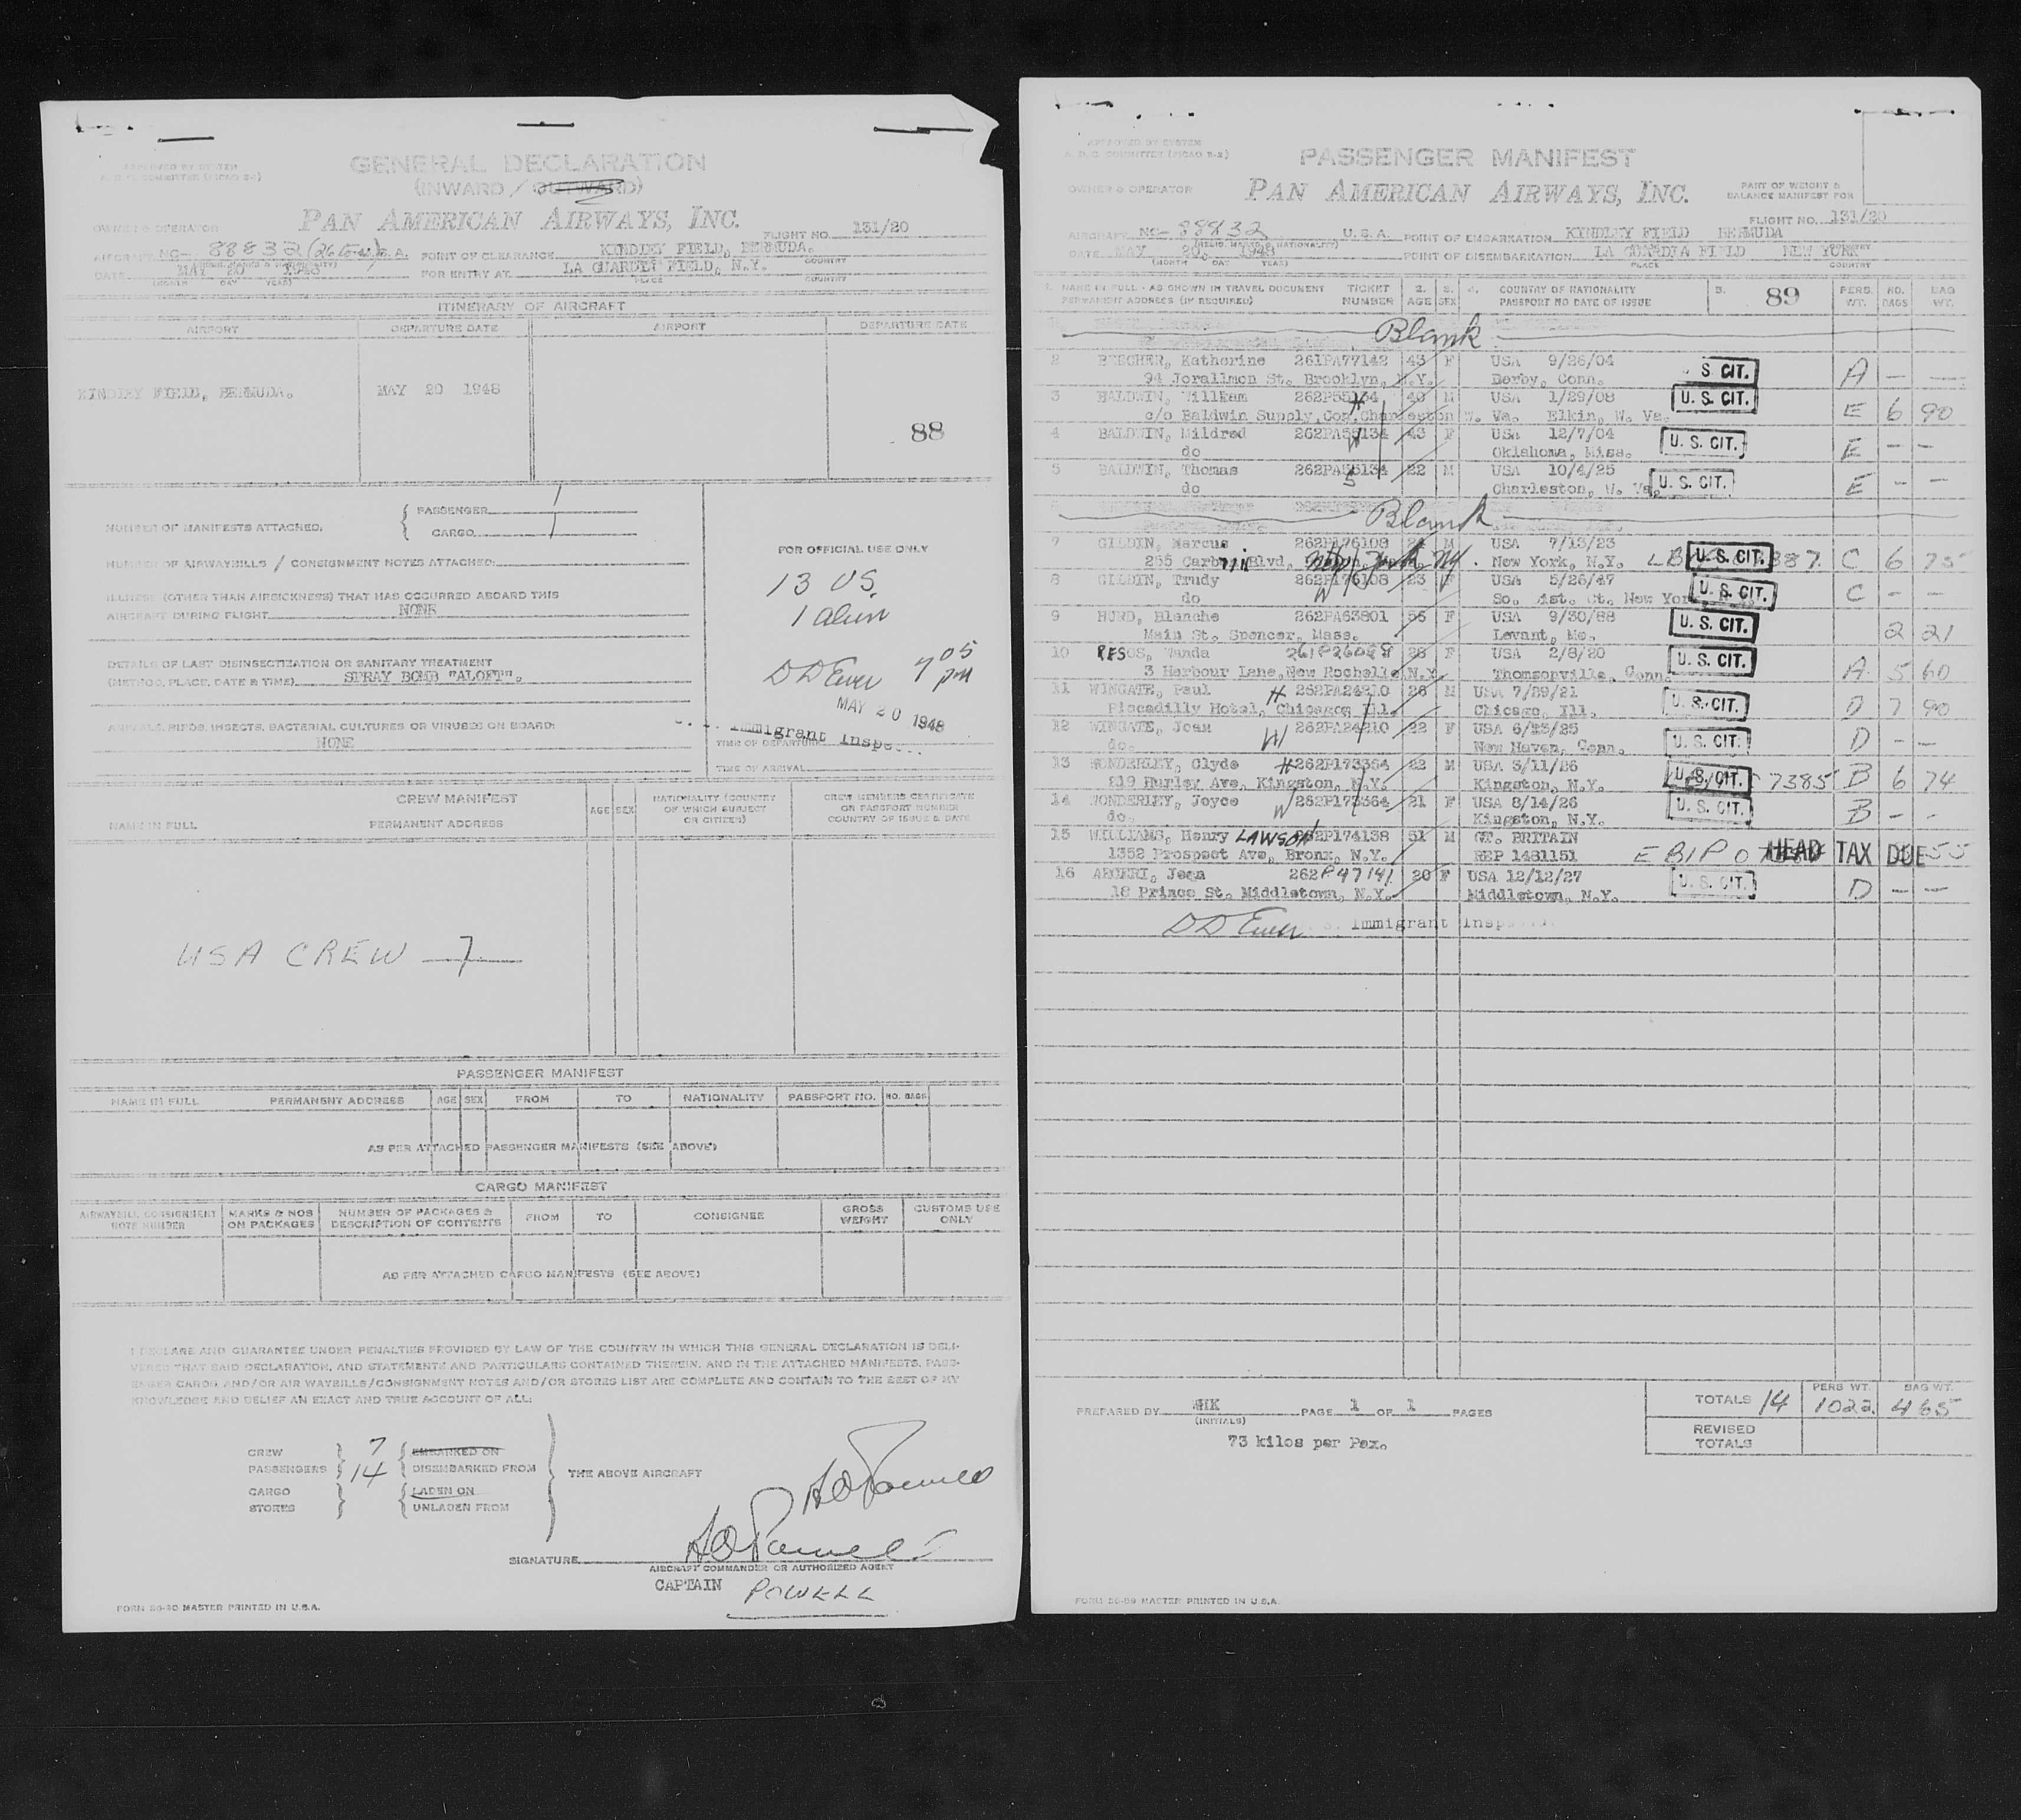 APPROVED BY SYSTEM
GENERAL DECLARATION
(INWARD / OUTWARD)
OWNER & OPERATOR PAN AMERICAN AIRWAYS, INC. FLIGHT NO. 131/20
AIRCRAFT NC- 88832 U.S.A. POINT OF CLEARANCE KINDLEY FIELD, BERMUDA.
DATE MAY 20 1948 FOR ENTRY AT LA GUARDIA FIELD, N.Y.
(MONTH DAY YEAR) PLACE COUNTRY
ITINERARY OF AIRCRAFT
AIRPORT DEPARTURE DATE AIRPORT DEPARTURE DATE
KINDLEY FIELD, BERMUDA. MAY 20 1948
88
NUMBER OF MANIFESTS ATTACHED: PASSENGER 1
CARGO 1
NUMBER OF AIRWAYBILLS / CONSIGNMENT NOTES ATTACHED:
ILLNESS (OTHER THAN AIRSICKNESS) THAT HAS OCCURRED ABOARD THIS
AIRCRAFT DURING FLIGHT NONE
DETAILS OF LAST DISINSECTIZATION OR SANITARY TREATMENT
(METHOD, PLACE, DATE & TIME) SPRAY BOMB "ALOFT".
ANIMALS, BIRDS, INSECTS, BACTERIAL CULTURES OR VIRUSES ON BOARD:
NONE
FOR OFFICIAL USE ONLY
13 US.
1 alien
7 05 PM
MAY 20 1948
Immigrant Inspe
TIME OF DEPARTURE
TIME OF ARRIVAL
CREW MANIFEST AGE SEX NATIONALITY (COUNTRY OF WHICH SUBJECT OR CITIZEN) CREW MEMBERS CERTIFICATE OR PASSPORT NUMBER COUNTRY OF ISSUE & DATE
NAME IN FULL PERMANENT ADDRESS
USA CREW 7
PASSENGER MANIFEST
NAME IN FULL PERMANENT ADDRESS AGE SEX FROM TO NATIONALITY PASSPORT NO. NO. BAGS
AS PER ATTACHED PASSENGER MANIFESTS (SEE ABOVE)
CARGO MANIFEST
AIRWAYBILL CONSIGNMENT NOTE NUMBER MARKS & NOS ON PACKAGES NUMBER OF PACKAGES & DESCRIPTION OF CONTENTS FROM TO CONSIGNEE GROSS WEIGHT CUSTOMS USE ONLY
AS PER ATTACHED CARGO MANIFESTS (SEE ABOVE)
I DECLARE AND GUARANTEE UNDER PENALTIES PROVIDED BY LAW OF THE COUNTRY IN WHICH THIS GENERAL DECLARATION IS DELI-
VERED THAT SAID DECLARATION, AND STATEMENTS AND PARTICULARS CONTAINED THEREIN, AND IN THE ATTACHED MANIFESTS, PASS-
ENGER CARGO, AND/OR AIR WAYBILLS/CONSIGNMENT NOTES AND/OR STORES LIST ARE COMPLETE AND CONTAIN TO THE BEST OF MY
KNOWLEDGE AND BELIEF AN EXACT AND TRUE ACCOUNT OF ALL:
CREW 7 EMBARKED ON
PASSENGERS 14 DISEMBARKED FROM THE ABOVE AIRCRAFT
CARGO LADEN ON
STORES UNLADEN FROM
SIGNATURE
AIRCRAFT COMMANDER OR AUTHORIZED AGENT
CAPTAIN POWELL
FORM 26-20 MASTER PRINTED IN U.S.A.
APPROVED BY SYSTEM
PASSENGER MANIFEST
OWNER & OPERATOR PAN AMERICAN AIRWAYS, INC. PART OF WEIGHT & BALANCE MANIFEST FOR
FLIGHT NO. 131/20
AIRCRAFT NC- 88832 U.S.A. POINT OF EMBARKATION KINDLEY FIELD BERMUDA
DATE MAY 20, 1948 POINT OF DISEMBARKATION LA GUARDIA FIELD NEW YORK
(MONTH DAY YEAR) PLACE COUNTRY
1. NAME IN FULL - AS SHOWN IN TRAVEL DOCUMENT TICKET 2. 3. 4. COUNTRY OF NATIONALITY 5. 89 PERS. NO. BAG
PERMANENT ADDRESS (IF REQUIRED) NUMBER AGE SEX PASSPORT NO DATE OF ISSUE WT. BAGS WT.
Blank
2 BEECHER, Katherine 261PA77142 43 F USA 9/26/04 U. S. CIT. A - -
94 Jorallmon St. Brooklyn, N.Y. Derby, Conn.
3 BALDWIN, William 262P55134 H 40 M USA 1/29/08 U. S. CIT. E 6 90
c/o Baldwin Supply, Com, Charleston W. Va. Elkin, W. Va.
4 BALDWIN, Mildred 262PA55134 W 43 F USA 12/7/04 U. S. CIT. E - -
do Oklahoma, Miss.
5 BALDWIN, Thomas 262PA55134 S 22 M USA 10/4/25 U. S. CIT. E - -
do Charleston, W. Va.
Blank
7 GILDIN, Marcus 262P176108 24 M USA 7/13/23 U. S. CIT. C 6 75
255 Blvd, New York, N.Y.
8 GILDIN, Trudy 262P176108 W 23 F USA 5/26/47 U. S. CIT. C - -
do So. Dist. Ct. New York
9 HURD, Blanche 262PA63801 56 F USA 9/30/88 U. S. CIT. 2 21
Main St. Spencer, Mass. Levant, Me.
10 Wanda 28 F USA 2/8/20 U. S. CIT. A 5 60
3 Harbour Lane, New Rochelle N.Y. Thomsonville, Conn.
11 WINGATE, Paul H 262PA24210 26 M USA 7/29/21 U. S. CIT. D 7 90
Piccadilly Hotel, Chicago, Ill. Chicago, Ill.
12 WINGATE, Jean W 262PA24210 22 F USA 6/23/25 U. S. CIT. D - -
do. New Haven, Conn.
13 WONDERLEY, Clyde H 262P173364 22 M USA 3/11/26 U. S. CIT. 7385 B 6 74
219 Hurley Ave, Kingston, N.Y. Kingston, N.Y.
14 WONDERLEY, Joyce W 262P173364 21 F USA 8/14/26 U. S. CIT. B - -
do. Kingston, N.Y.
15 WILLIAMS, Henry LAWSON 262P174138 51 M GT. BRITAIN HEAD TAX DUE 55
1352 Prospect Ave, Bronx, N.Y. REP 1481151
16 Jean 262P47141 20 F USA 12/12/27 U. S. CIT. D - -
18 Prince St. Middletown, N.Y. Middletown, N.Y.
Immigrant Inspe
TOTALS 14 PERS WT. 1022 BAG WT. 465
PREPARED BY MHK PAGE 1 OF 1 PAGES
(INITIALS)
73 kilos per Pax.
REVISED TOTALS
FORM 26-09 MASTER PRINTED IN U.S.A.